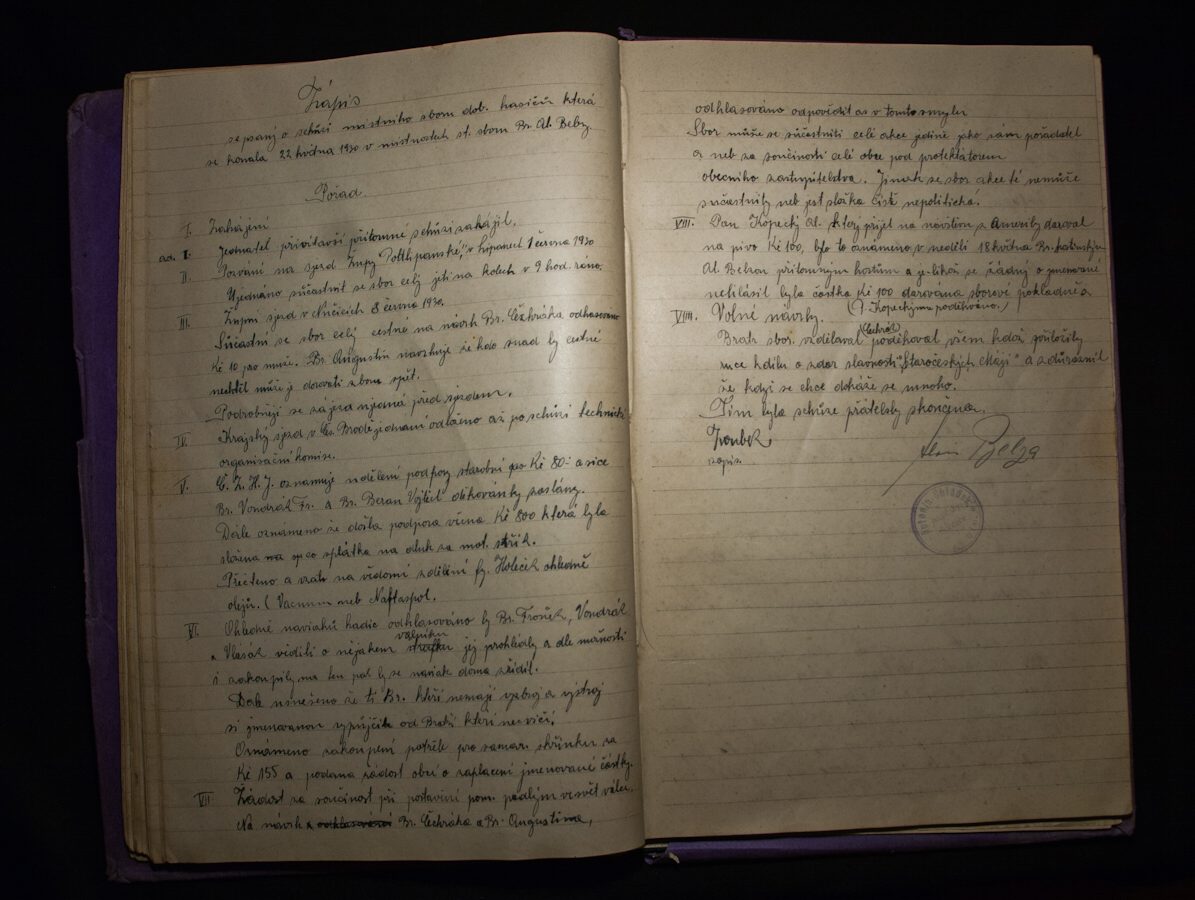 Zápis
sepsaný o schůzi místního sboru dob. hasičů která
se konala 22 května 1930 v místnostech st. sboru Br. Al. Belzy.
Pořad.
I. Zahájení
ad. I. Jednatel přivítavší přítomné schůzi zahájil.
II. Pozvání na sjezd Župy "Podlipanské," v Lipanech 1 června 1930
Ujednáno súčastnit se sbor celý jeti na kolech v 9 hod. ráno.
III. Župní sjezd v Nučicích 8 června 1930.
Súčastní se sbor celý cestné na návrh Br. Čechráka odhlasováno
Kč 10 pro muže. Br. Augustin navrhuje že kdo snad by cestné
nechtěl může je darovati sboru spět.
Podrobněji se zájezd ujedná před sjezdem.
IV. Krajský sjezd v Čes. Brodě jednání odloženo až po schůzi technické
organisační komise.
V. Č. Z. H. J. oznamuje udělení podpory starobní po Kč 80- a sice
Br. Vondrák Fr. a Br. Beran Vojtěch děkovánky zaslány.
Dále oznámeno že došla podpora věcna Kč 800 která byla
složena na splátku na dluh za mot. střík.
Přečteno a vzato na vědomí sdělení fy. Holeček ohledně
olejů. (Vacuum neb Naftaspol.
VI. Ohledně naviáku hadic odhlasováno by Br. Froněk, Vondrák
a Vlasák viděli o nějakém valníku jej prohlédly a dle možnosti
i zakoupily na ten pak by se naviak doma zřídil.
Dále usneseno že ti Br. kteří nemají výzbroj a výstroj
si jmenovanou vypůjčili od Bratří kteří necvičí.
Oznámeno zakoupení potřeb pro samar. skřínku za
Kč 155 a podana žádost obci o zaplacení jmenované částky.
VII Žádost za součinost při postavení pom. padlým ve svět. válce.
Na návrh a odhlasování Br. Čechráka a Br. Augustina,
odhlasováno odpovědit as v tomto smyslu
Sbor může se súčastniti celé akce jedině jako sám pořadatel
a neb za součinosti celé obce pod protektorem
obecního zastupitelstva. Jinak se sbor akce té nemůže
súčastnily neb jest složka čistě nepolitická.
VIII. Pan Kopecký Al. který přijel na návštěvu z Ameriky daroval
na pivo Kč 100, bylo to oznámeno v neděli 18 května Br. hostinským
Al. Belzou přítomným hostům a jelikož se žádný o jmenované
nehlásil byla částka Kč 100 darována sborové pokladně.
VIIII. Volné návrhy. (P. Kopeckýmu poděkováno.)
Bratr sbor. vzdělaval Čechrák poděkoval všem kdož přiložily
ruce k dílu o zdar slavnosti "Staročeských Májí" a zdůraznil
že když se chce dokáže se mnoho.
Tím byla schůze přátelsky skončena.
Zoubek
zapis.
Alois Belza